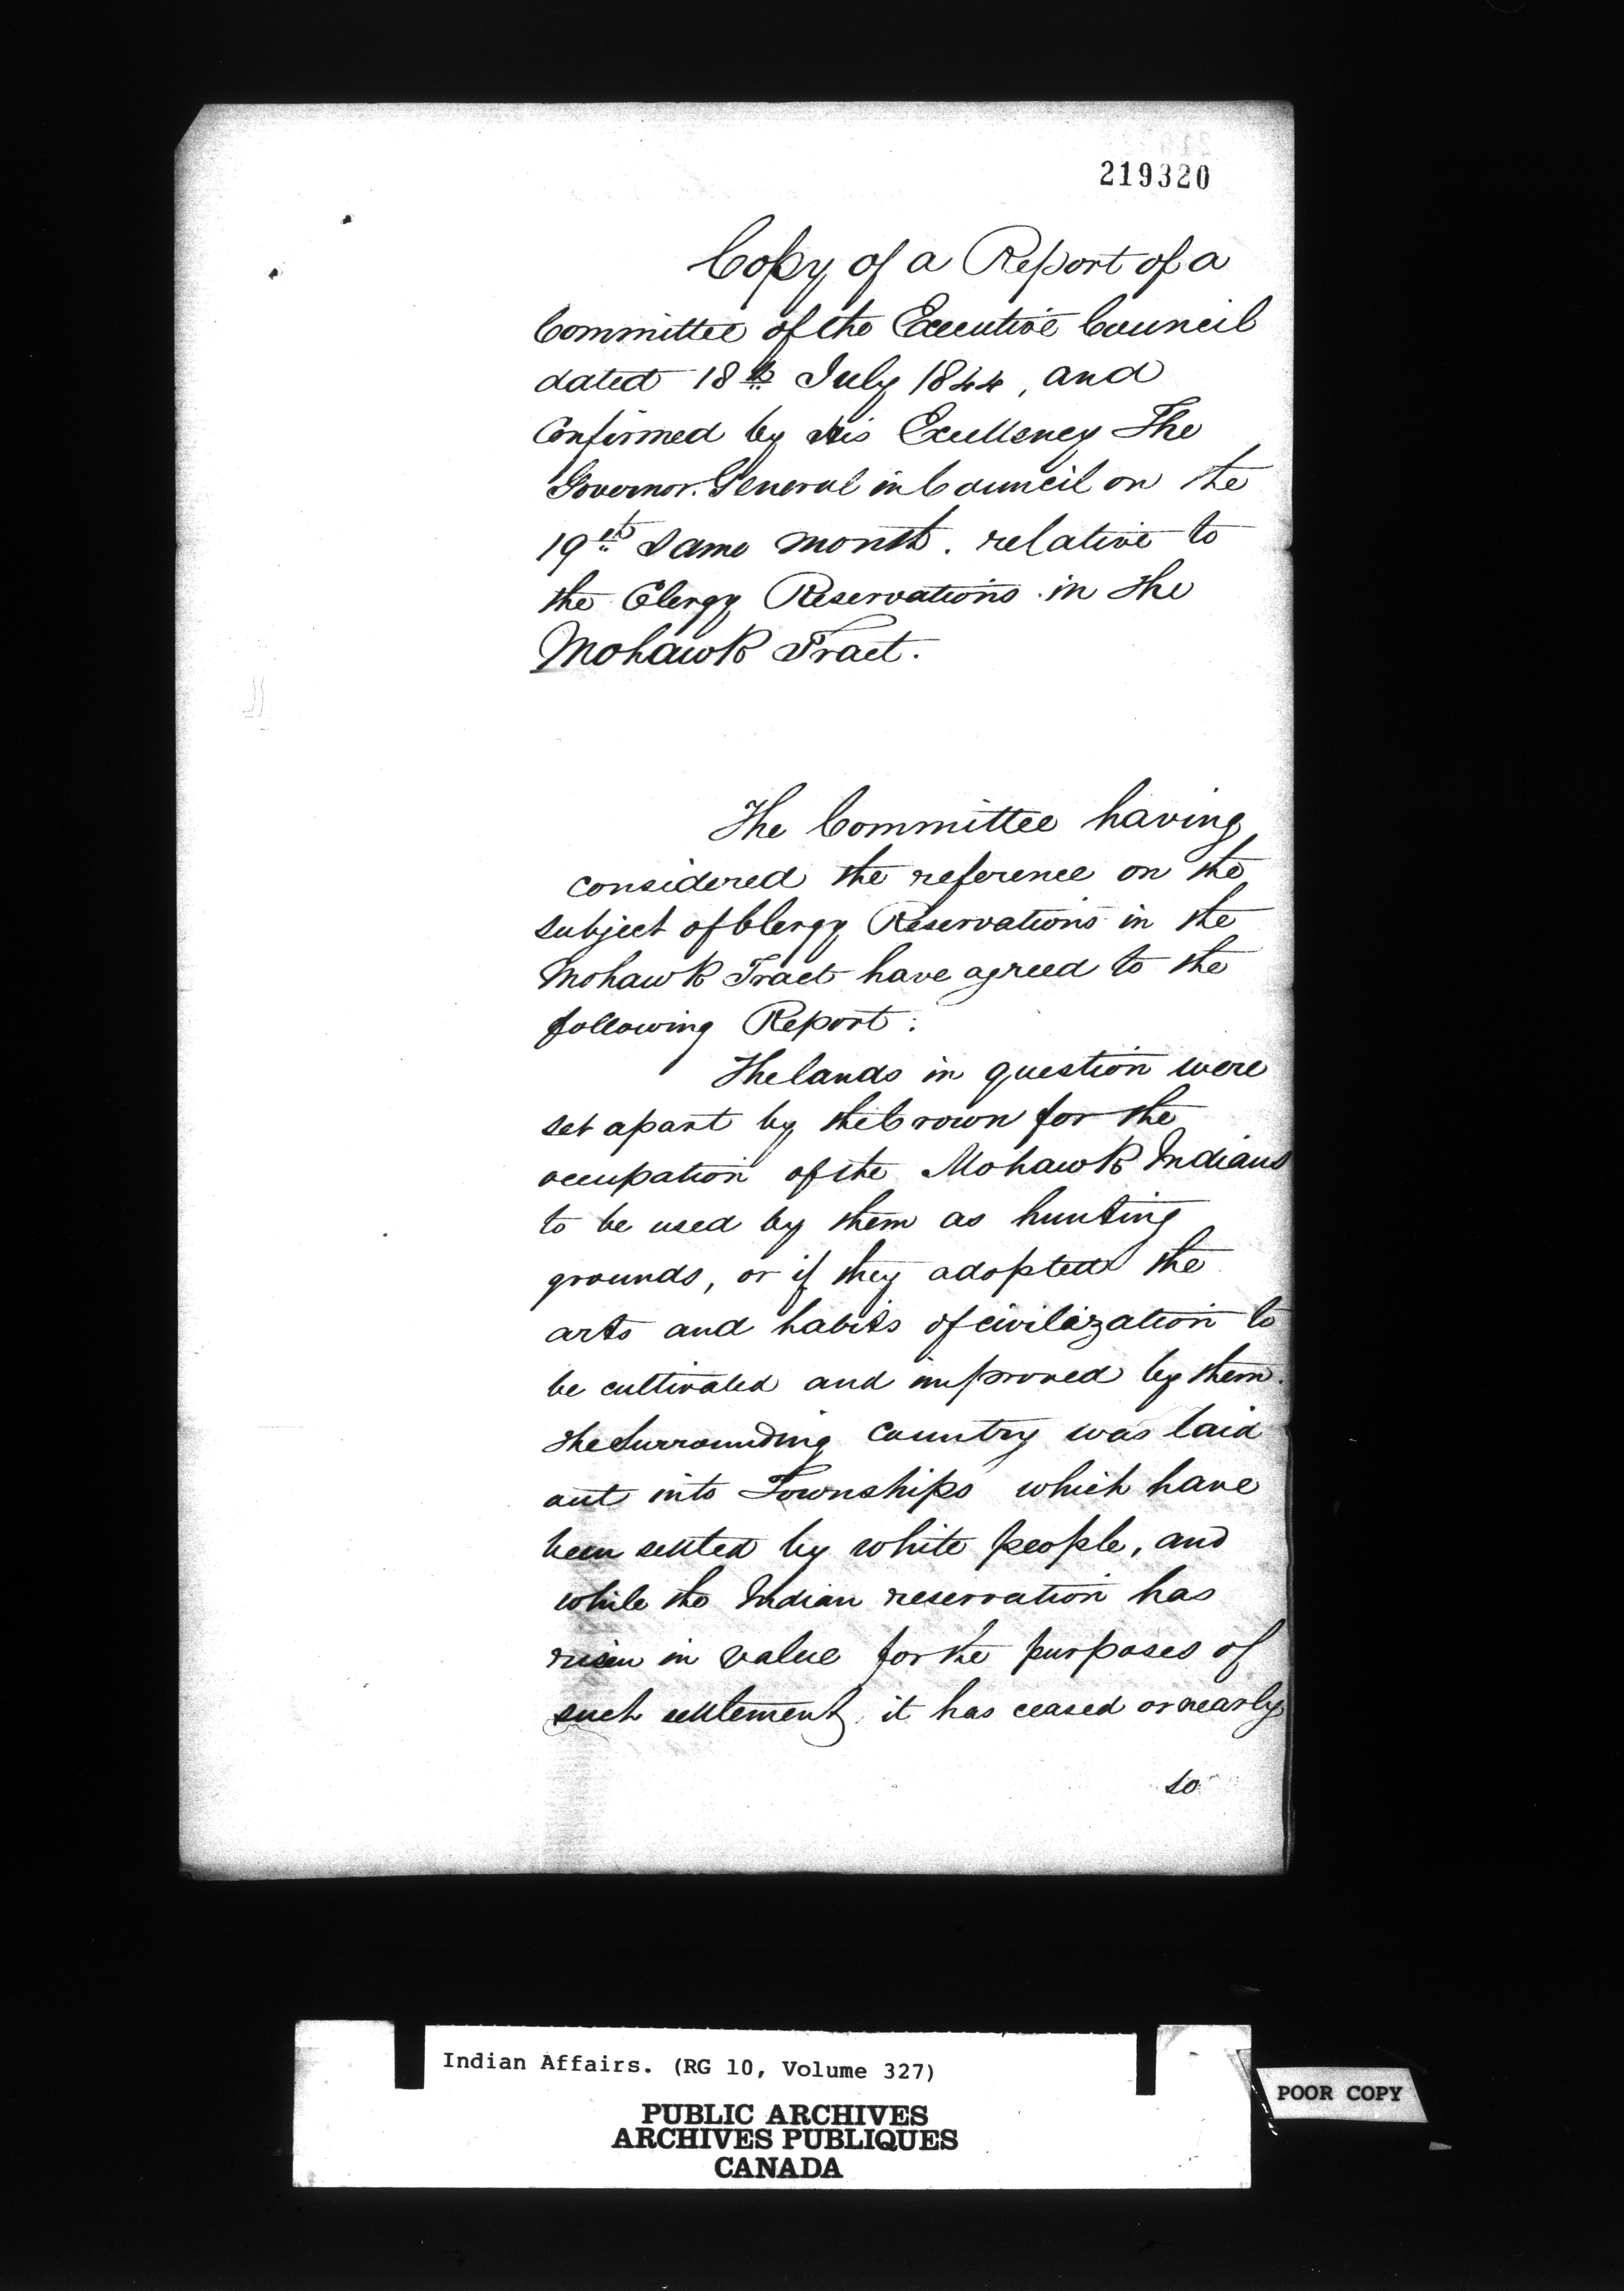 219320
Copy of a Report of a
Committee of the Executive Council
dated 18th July 1844, and
Confirmed by His Excellency The
Governor General in Council on the
19th Same month. relative to
the Clergy Reservations in the
Mohawk Tract.
The Committee having
considered the reference on the
subject of Clergy Reservations in the
Mohawk Tract have agreed to the
following Report:
The lands in question were
set apart by the Crown for the
occupation of the Mohawk Indians
to be used by them as hunting
grounds, or if they adopted the
arts and habits of civilization to
be cultivated and improved by them.
The Surrounding Country was laid
out into Townships which have
been settled by white people, and
while the Indian reservation has
risen in value for the purposes of
such settlement, it has ceased or nearly
so
Indian Affairs. (RG 10, Volume 327)
PUBLIC ARCHIVES
ARCHIVES PUBLIQUES
CANADA
POOR COPY